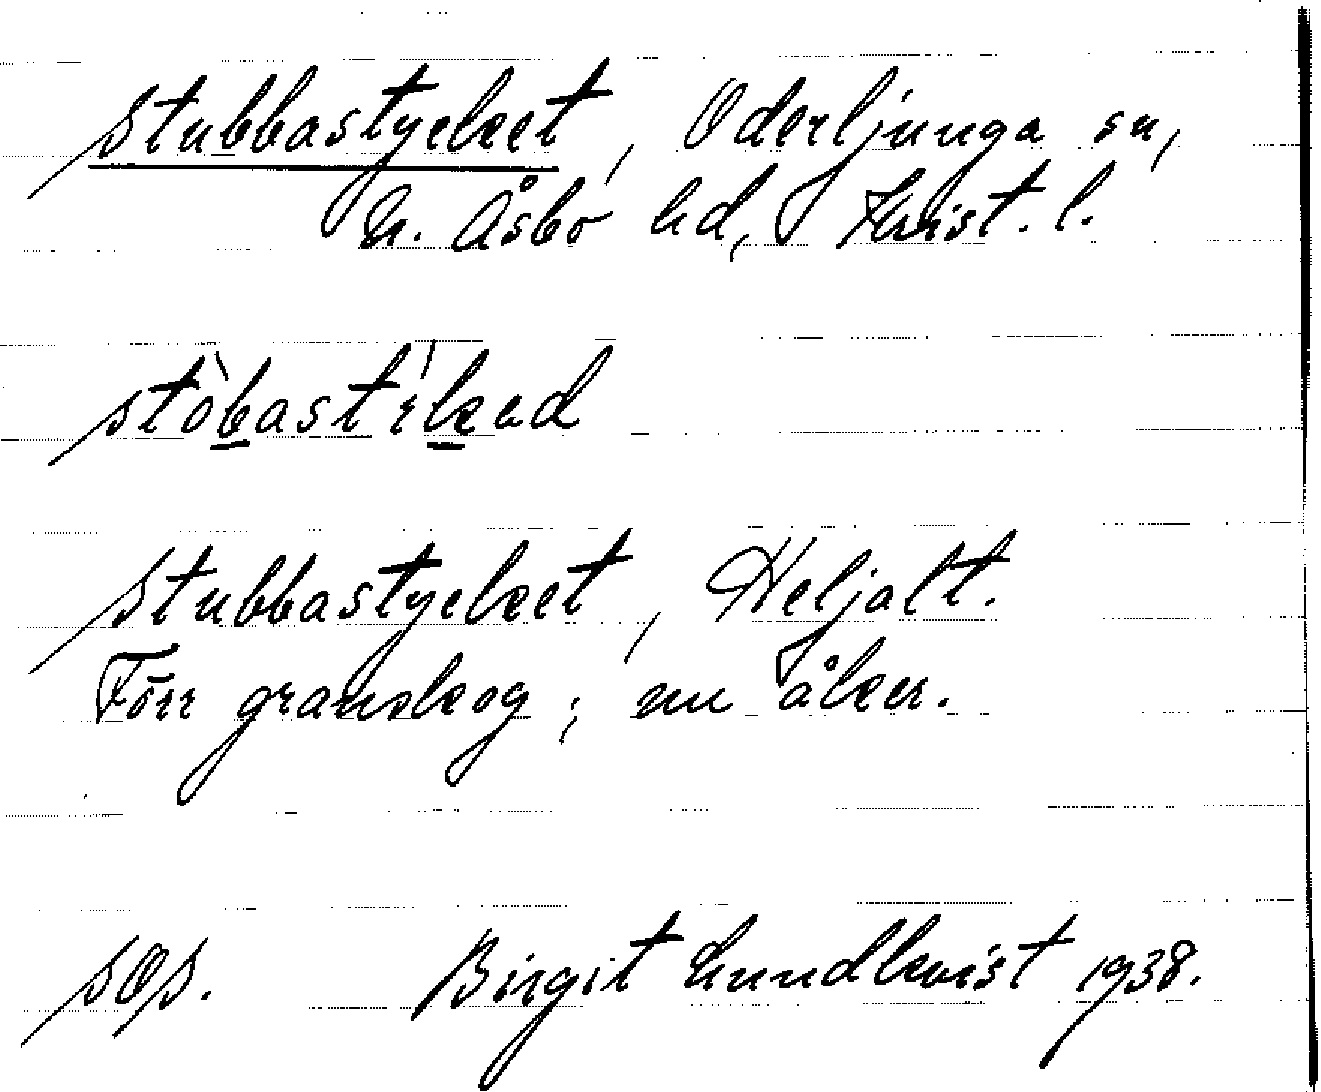 Stubbastycket, Oderljunga sn,
N. Åsbo hd, Krist. l.
stòbastìkəd
Stubbastycket, Heljalt.
Förr granskog; nu åker.
SOS. Birgit Lundkvist 1938.